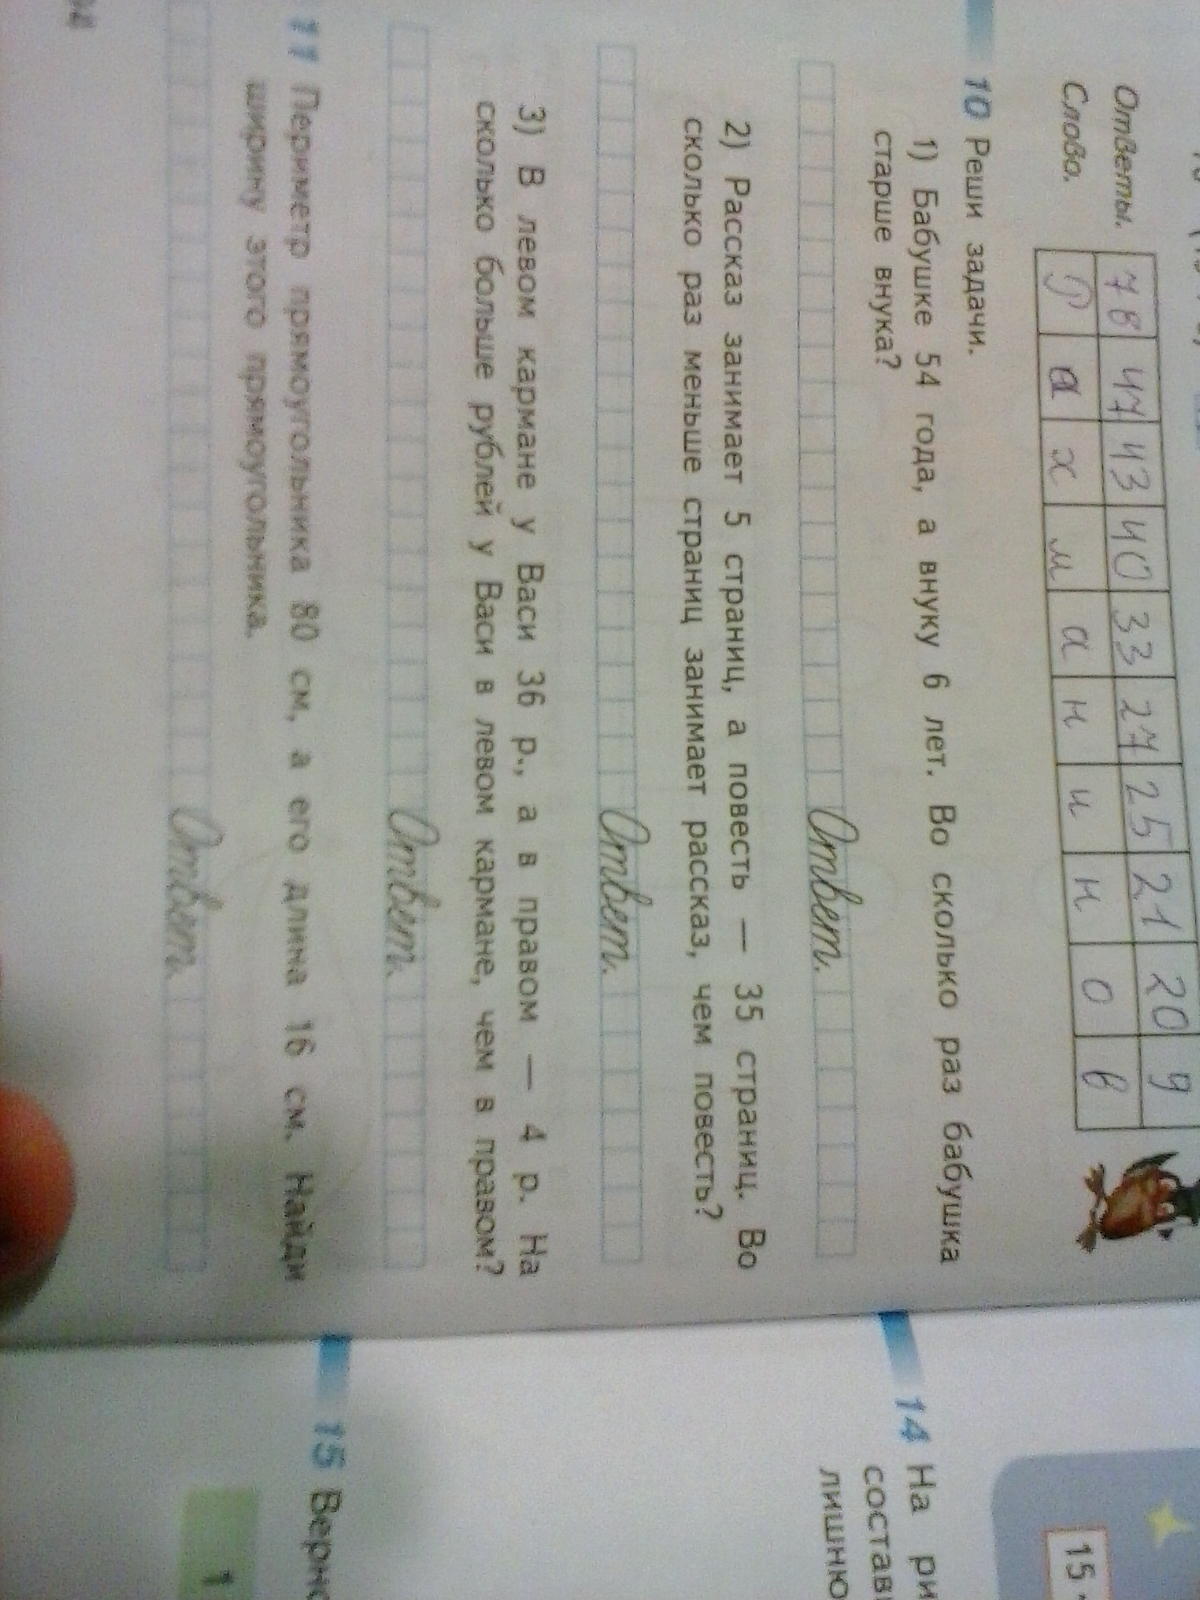 Ответы. 78 47 43 40 33 27 25 21 20 9
Слово. Р а х м а н и н о в
10 Реши задачи.
1) Бабушке 54 года, а внуку 6 лет. Во сколько раз бабушка
старше внука?
Ответ.
2) Рассказ занимает 5 страниц, а повесть — 35 страниц. Во
сколько раз меньше страниц занимает рассказ, чем повесть?
Ответ.
3) В левом кармане у Васи 36 р., а в правом — 4 р. На
сколько больше рублей у Васи в левом кармане, чем в правом?
Ответ.
11 Периметр прямоугольника 80 см, а его длина 16 см. Найди
ширину этого прямоугольника.
Ответ.
15
14 На ри
состав
лишню
15 Верно
1